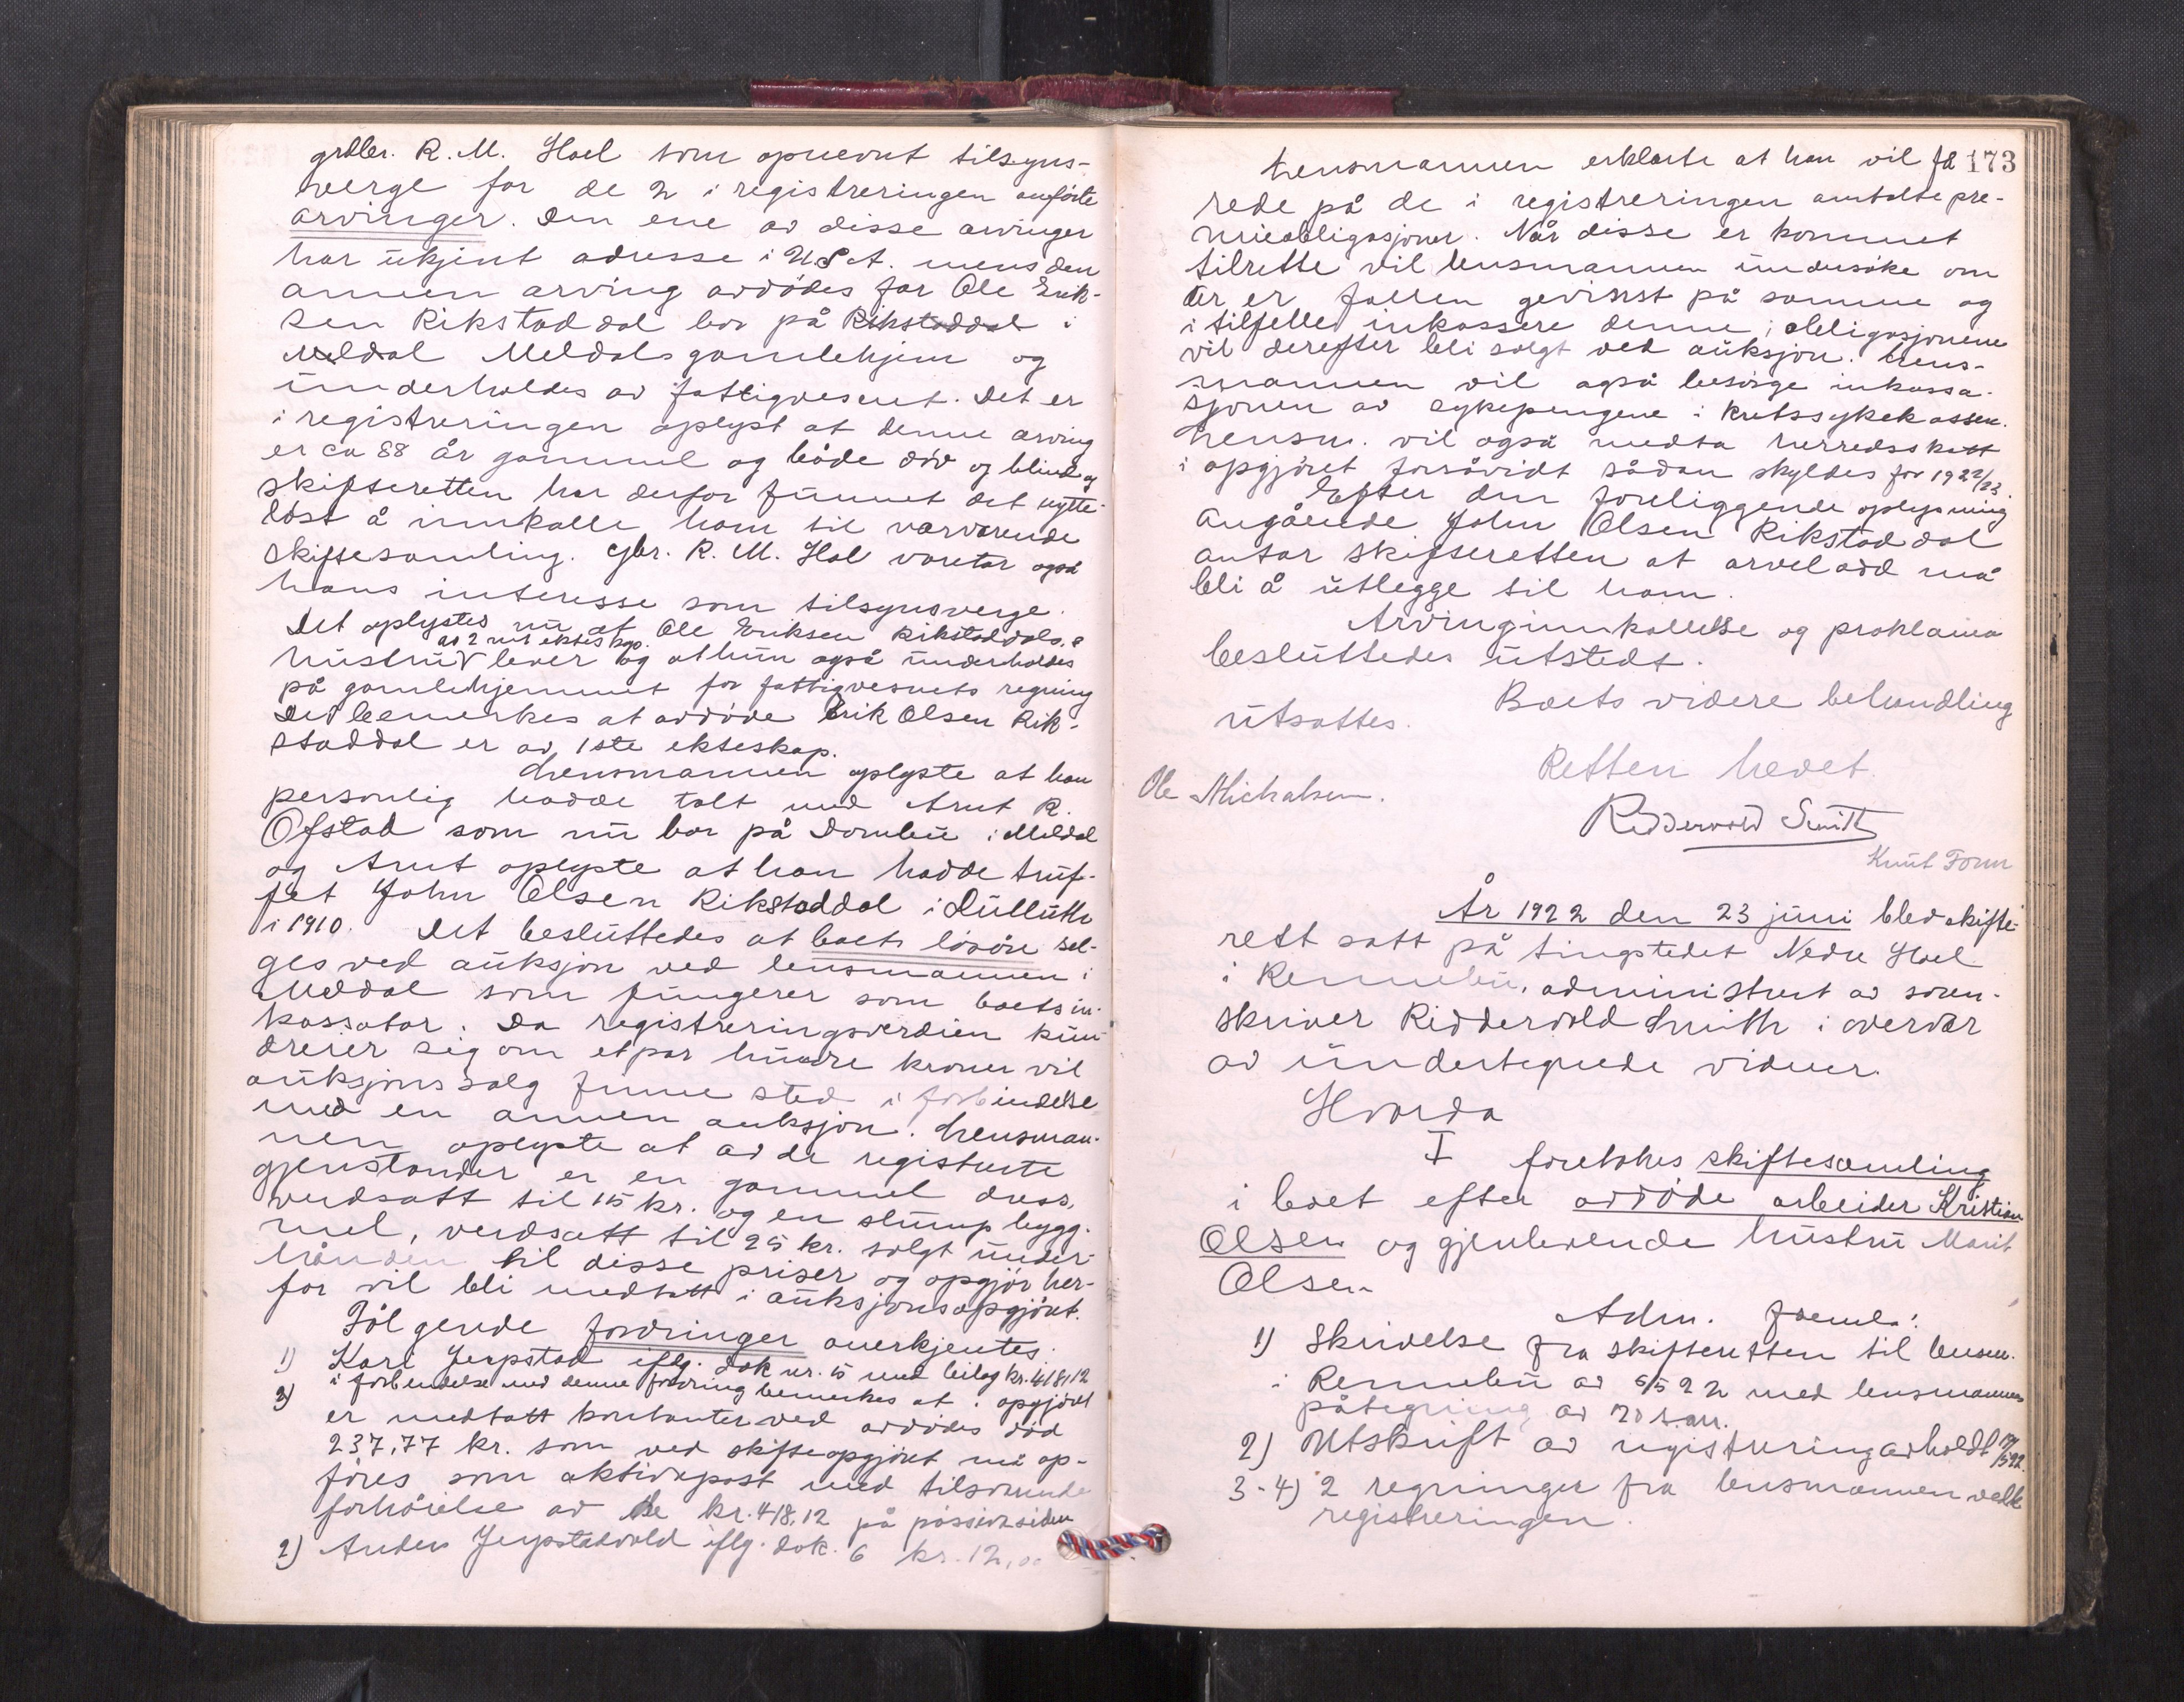 grdbr. R. M. Hoel som opnevnt tilsyns-
verge for de 2 i registreringen anførte
arvinger. Den ene av disse arvinger
har ukjent adresse i U.S.A. mens den
annen arving avdødes far Ole Erik-
sen Rikstaddal bor på Rikstaddal i
Meldal Meldals gamlehjem og
underholdes av fattigvesenet. Det er
i registreringen oplyst at denne arving
er ca 88 år gammel og både døv og blind og
skifteretten har derfor funnet det nytte-
løst å innkalle ham til værværende
skiftesamling. Gbr. R. M. Hol varetar også
hans interesse som tilsynsverge.
Det oplystes nu at Ole Eriksen Rikstaddals
av 2net ekteskap.
hustru lever og at hun også underholdes
på gamlehjemmet for fattigvesnets regning
Det bemerkes at avdøde Erik Olsen Rik-
staddal er av 1ste ekteskap.
Lensmannen oplyste at han
personlig hadde talt med Arnt R.
Ofstad som nu bor på Dombu i Meldal
og Arnt oplyste at han hadde truf-
fet John Olsen Rikstaddal i Dulluth
i 1910. Det besluttedes at boets løsøre sel-
ges ved auksjon ved lensmannen i
Meldal som fungerer som boets in-
kassator. Da registreringsverdien kun
dreier sig om et par hundre kroner vil
auksjonssalg finne sted i forbindelse
med en annen auksjon. Lensman-
nen oplyste at av de registrerte
gjenstander er en gammel dress,
verdsatt til 15 kr. og en slump bygg-
mel, verdsatt til 25 kr. solgt under-
hånden til disse priser og opgjør her-
for vil bli medtatt i auksjonsopgjøret.
Følgende fordringer anerkjentes.
1) Kari Jerpstad iflg. dok nr. 5 med beilag kr. 418,12
3) i forbindelse med denne fordring bemerkes at i opgjøret
er medtatt kontanter ved avdødes død
237,77 kr. som ved skifteopgjøret må op-
føres som aktivapost med tilsvarende
forhøielse av de kr. 418,12 på passivasiden
2) Anders Jerpstadvold iflg. dok. 6 kr. 12,00
173
Lensmannen erklærte at han vil få
rede på de i registreringen antalte pre-
mieobligasjoner. Når disse er kommet
tilrette vil lensmannen undersøke om
der er fallen gevinst på samme og
i tilfelle inkassere denne; obligasjonene
vil derefter bli solgt ved auksjon. Lens-
mannen vil også besørge inkassa-
sjonen av sykepengene i kretssykekassen.
Lensm. vil også medta herredsskatt
i opgjøret forsåvidt sådan skyldes for 1922/23.
Efter den foreliggende oplysning
angående John Olsen Rikstaddal
antar skifteretten at arvelodd må
bli å utlegge til ham.
Arvinginnkallelse og proklama
besluttedes utstedt.
Boets videre behandling
utsattes.
Retten hevet.
Ole Michalsen.
Ridderwold Smith
Knut Form
År 1922 den 23 juni blev skifte-
rett satt på tingstedet Nedre Hoel
i Rennebu, administrert av soren-
skriver Riddervold Smith i overvær
av undertegnede vidner.
Hvorda
I foretokes skiftesamling
i boet efter avdøde arbeider Kristian
Olsen og gjenlevende hustru Marit
Olsen
Adm. freml.:
1) Skrivelse fra skifteretten til lensm.
i Rennebu av 6/5 22 med lensmannens
påtegning av 20 s.m.
2) Utskrift av registrering avholdt 19/5 22.
3-4) 2 regninger fra lensmannen vedk
registreringen.